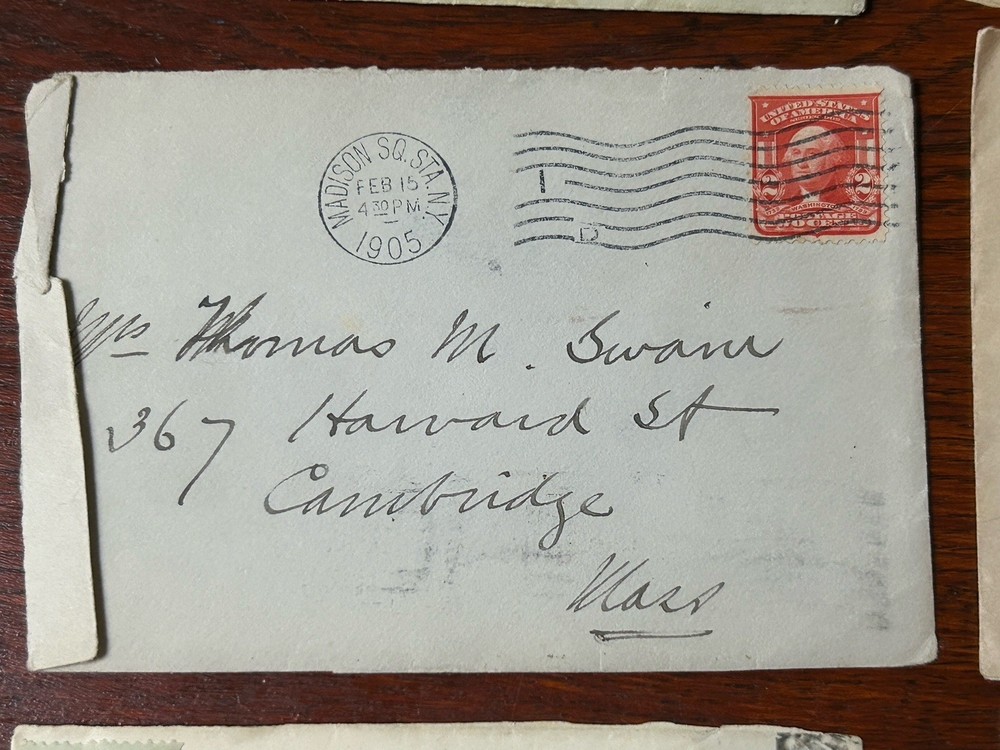 MADISON SQ. STA. N.Y.
FEB 15
4 30 PM
1905
1
D
UNITED STATES
OF AMERICA
SERIES 1902
2 2
WASHINGTON
TWO CENTS
Mrs Thomas M. Swann
367 Harvard St
Cambridge
Mass